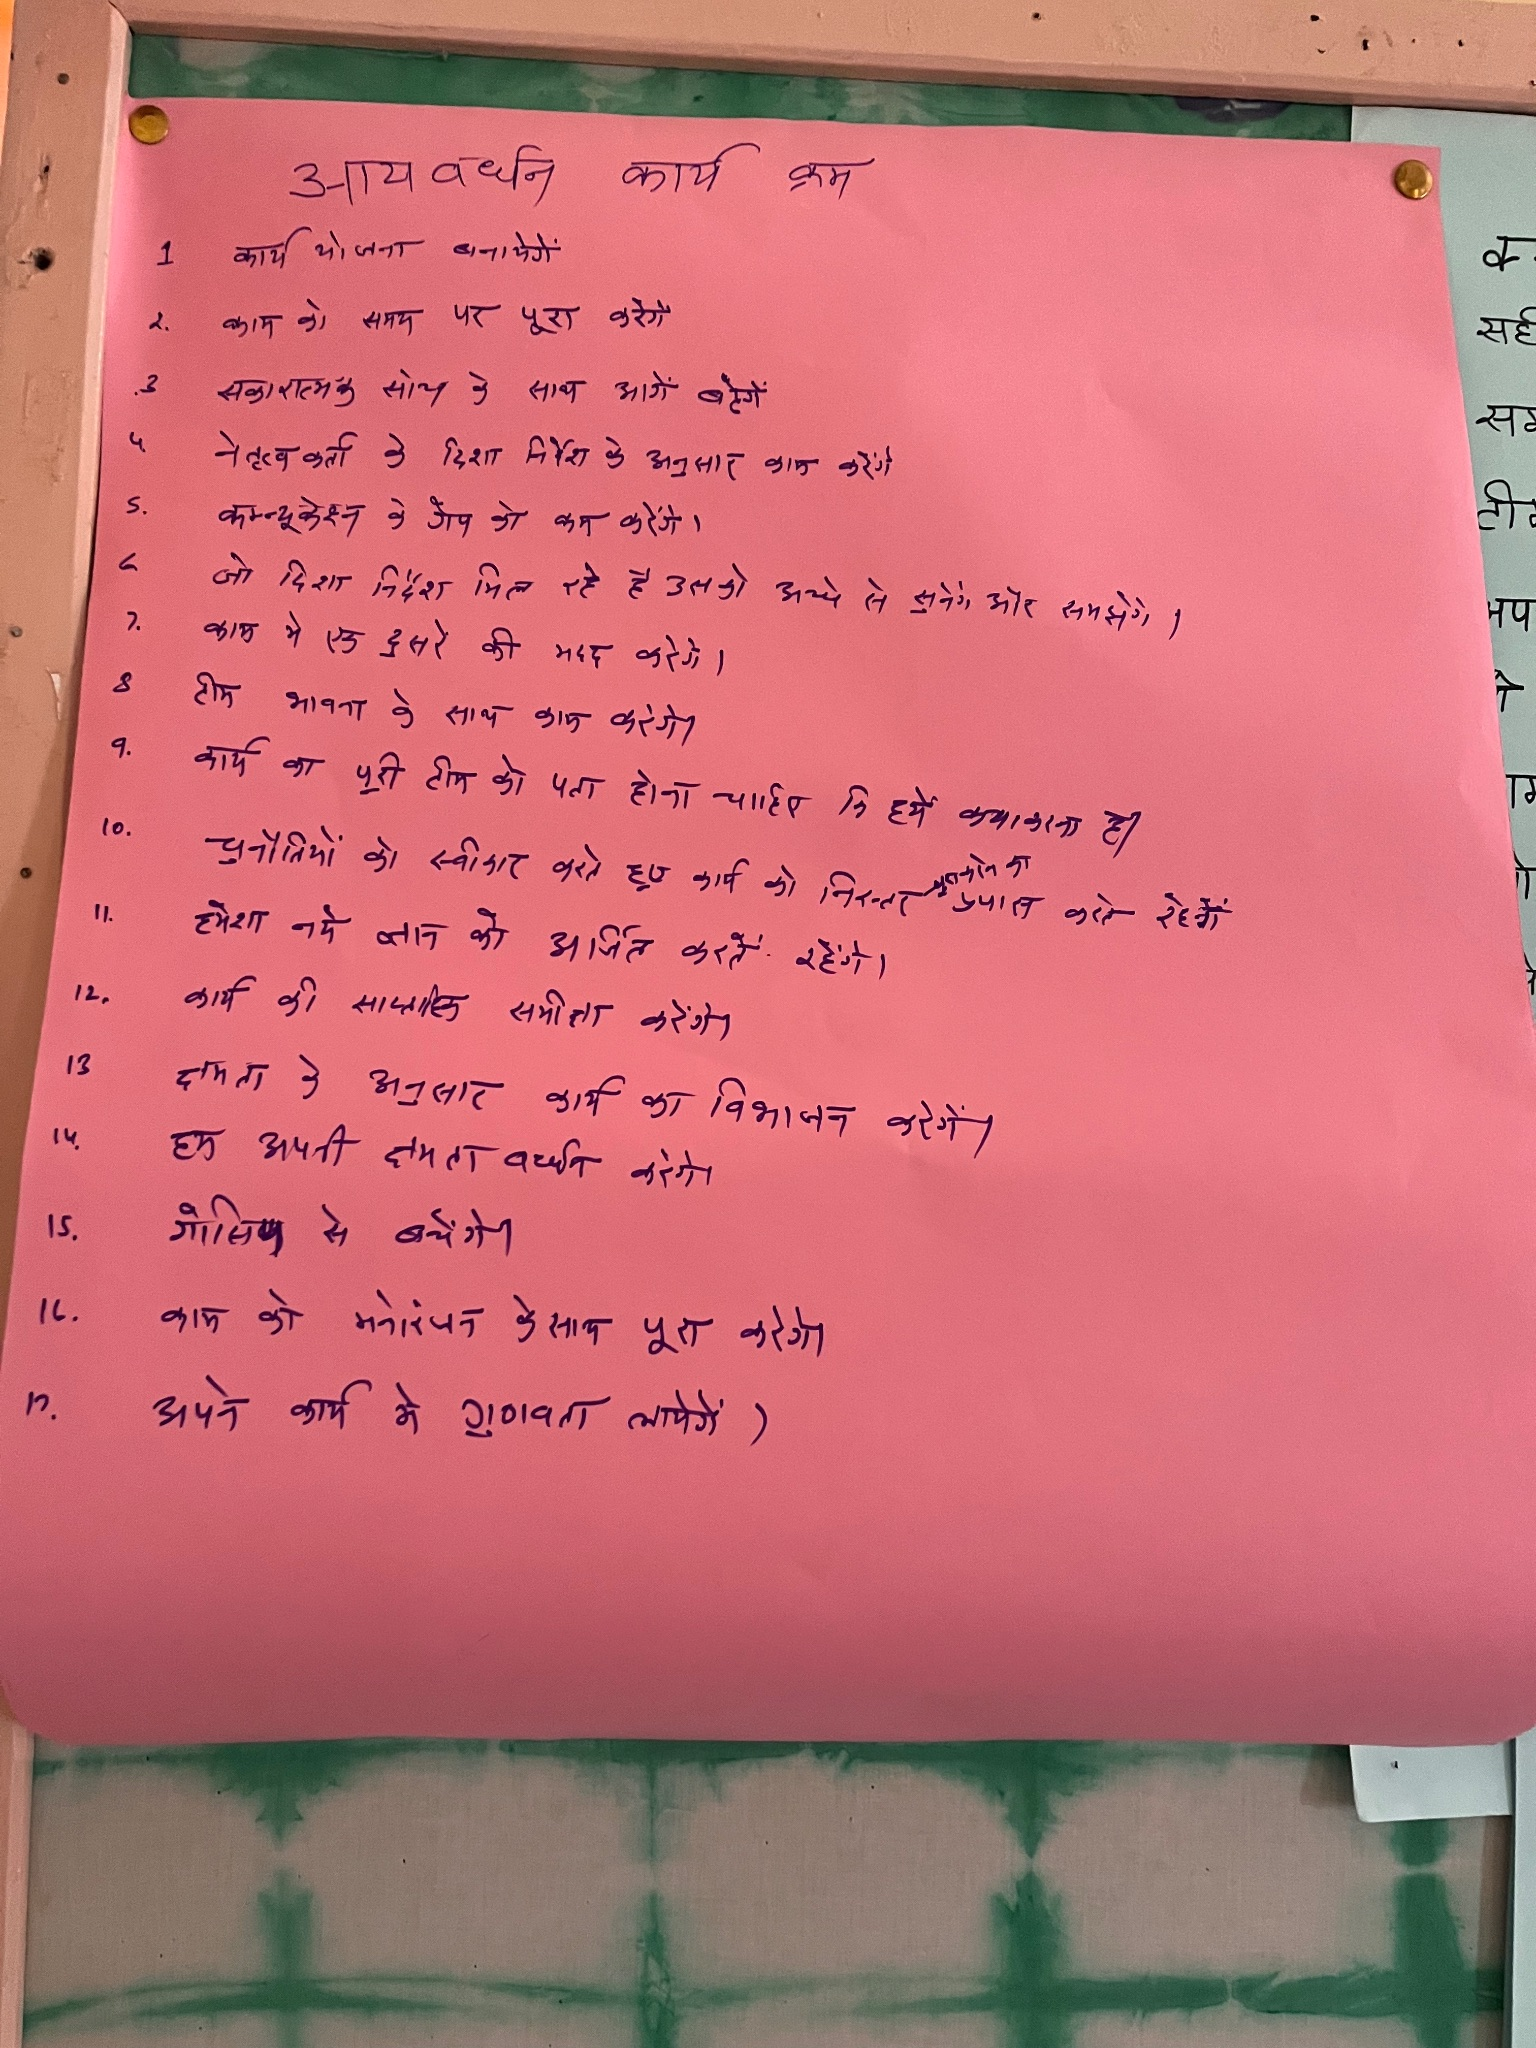 आयवर्धन कार्य क्रम
1 कार्य योजना बनायेगें
2. काम को समय पर पूरा करेगें
.3 सकारात्मक सोच के साथ आगें बढ़ेगें
4 नेतृत्व कर्ता के दिशा निर्देश के अनुसार काम करेंगे
5. कम्न्यूकेशन के गैप को कम करेंगे।
6 जो दिशा निर्देश मिल रहे है उसको अच्छे से सुनेगे और समझेगे।
7. काम मे एक दुसरे की मदद करेगे।
8 टीम भावना के साथ काम करेगे।
9. कार्य का पूरी टीम को पता होना चाहिए कि हमें क्या करना है।
10. चुनौतियों को स्वीकार करते हुए कार्य को निरन्तर प्रयास करते रहेगें
11. हमेशा नये ज्ञान को अर्जित करतें रहेंगे।
12. कार्य की साप्ताहिक समीक्षा करेंगे।
13 क्षमता के अनुसार कार्य का विभाजन करेगें।
14. हम अपनी क्षमता वर्धन करेगे।
15. गौसिप से बचेंगे।
16. काम को मनोरंजन के साथ पूरा करेगे।
17. अपने कार्य मे गुणवता लायेगें।
क
सही
टी